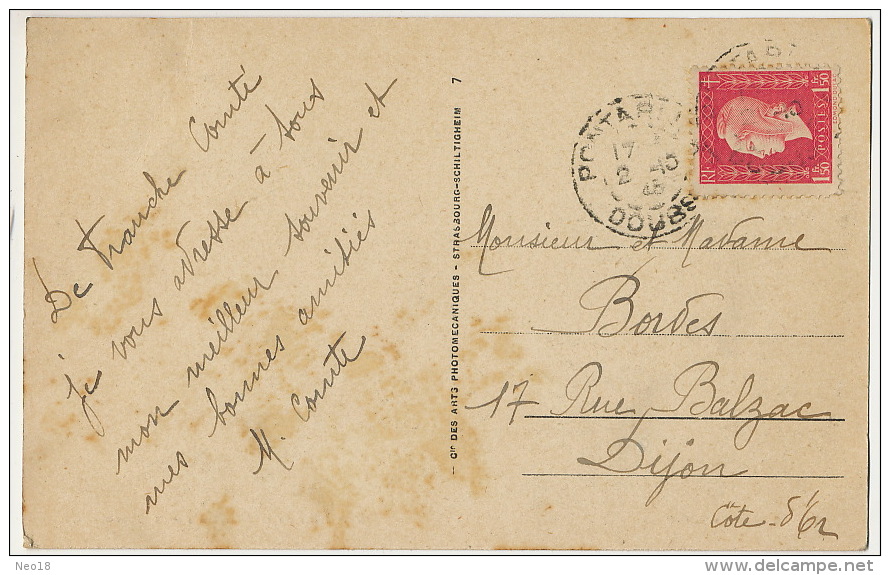 De Franche Comté
je vous adresse à tous
mon meilleur souvenir et
mes bonnes amitiés
M. Comte
Cie DES ARTS PHOTOMECANIQUES - STRASBOURG-SCHILTIGHEIM 7
PONTARLI
17
2 -10
DOUBS
RF
1F50
POSTES
1F50
Monsieur et Madame
Bordes
17 Rue Balzac
Dijon
Côte-d'Or
Neo18
www.delcampe.net